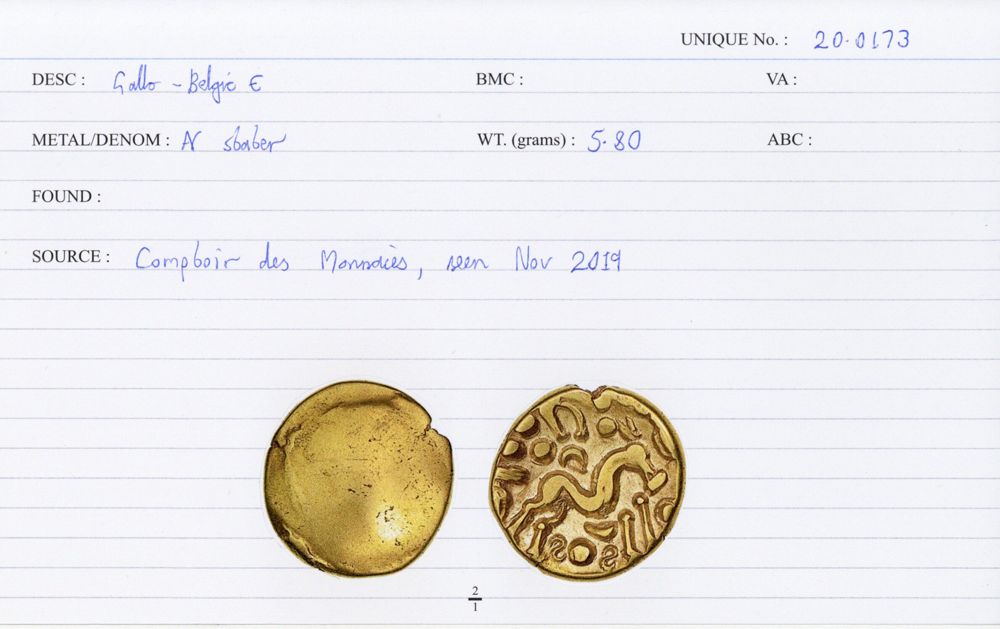 UNIQUE No. : 20.0173
DESC : Gallo - Belgic E BMC : VA :
METAL/DENOM : AV stater WT. (grams) : 5.80 ABC :
FOUND :
SOURCE : Comptoir des Monnaies, seen Nov 2019
2
1